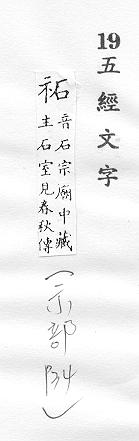 19五經文字
祏音石宗廟中藏
主石室見春秋傳
(示部134)